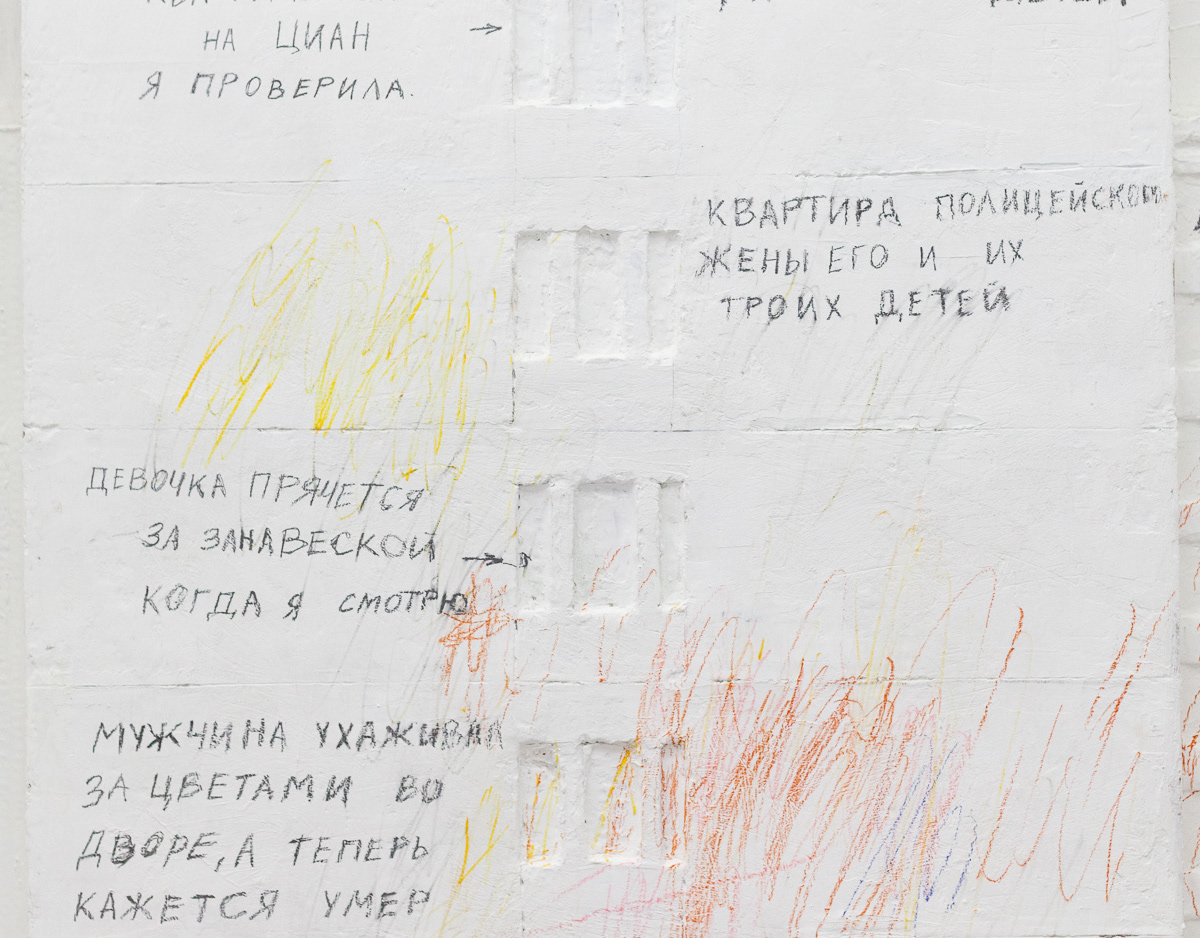 НА ЦИАН
Я ПРОВЕРИЛА.
КВАРТИРА ПОЛИЦЕЙСКОГО
ЖЕНЫ ЕГО И ИХ
ТРОИХ ДЕТЕЙ
ДЕВОЧКА ПРЯЧЕТСЯ
ЗА ЗАНАВЕСКОЙ
КОГДА Я СМОТРЮ
МУЖЧИНА УХАЖИВАЛ
ЗА ЦВЕТАМИ ВО
ДВОРЕ, А ТЕПЕРЬ
КАЖЕТСЯ УМЕР